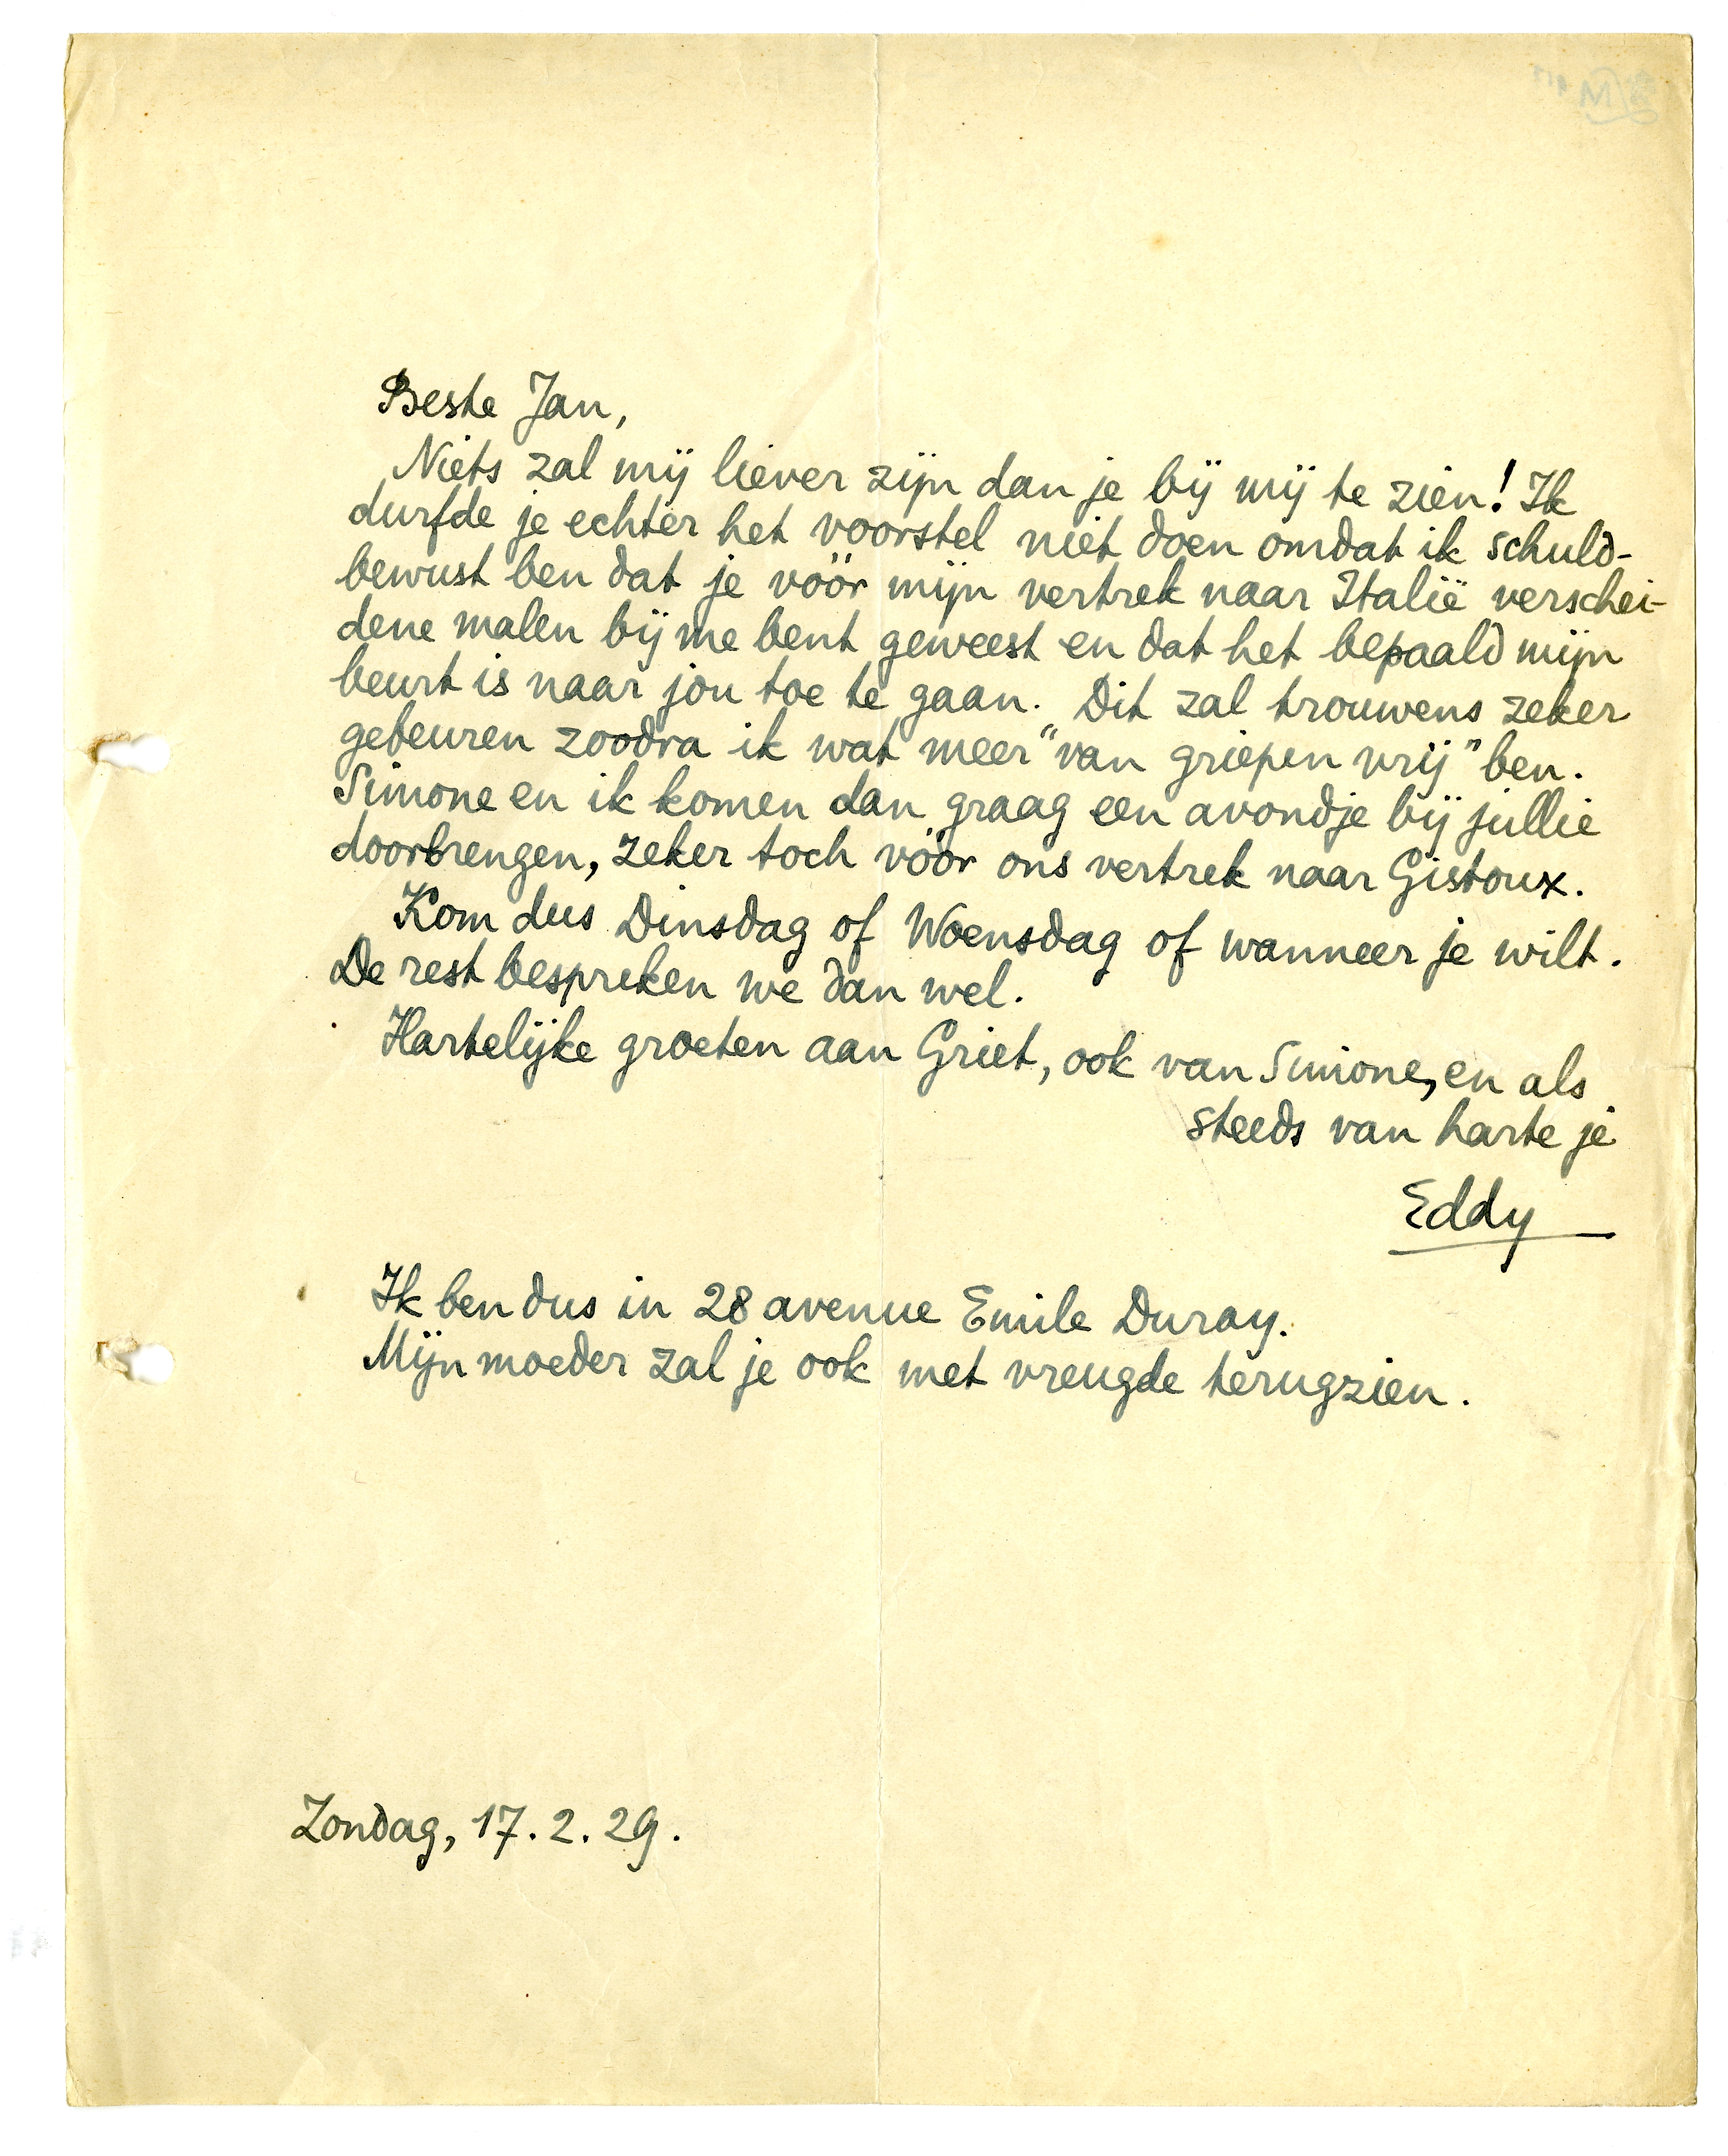 Beste Jan,
Niets zal mij liever zijn dan je bij mij te zien! Ik
durfde je echter het voorstel niet doen omdat ik schuld-
bewust ben dat je vóór mijn vertrek naar Italië verschei-
dene malen bij me bent geweest en dat het bepaald mijn
beurt is naar jou toe te gaan. Dit zal trouwens zeker
gebeuren zoodra ik wat meer "van griepen vrij" ben.
Simone en ik komen dan graag een avondje bij jullie
doorbrengen, zeker toch vóór ons vertrek naar Gistoux.
Kom dus Dinsdag of Woensdag of wanneer je wilt.
De rest bespreken we dan wel.
Hartelijke groeten aan Griet, ook van Simone, en als
steeds van harte je
Eddy
Ik ben dus in 28 avenue Emile Duray.
Mijn moeder zal je ook met vreugde terugzien.
Zondag, 17.2.29.